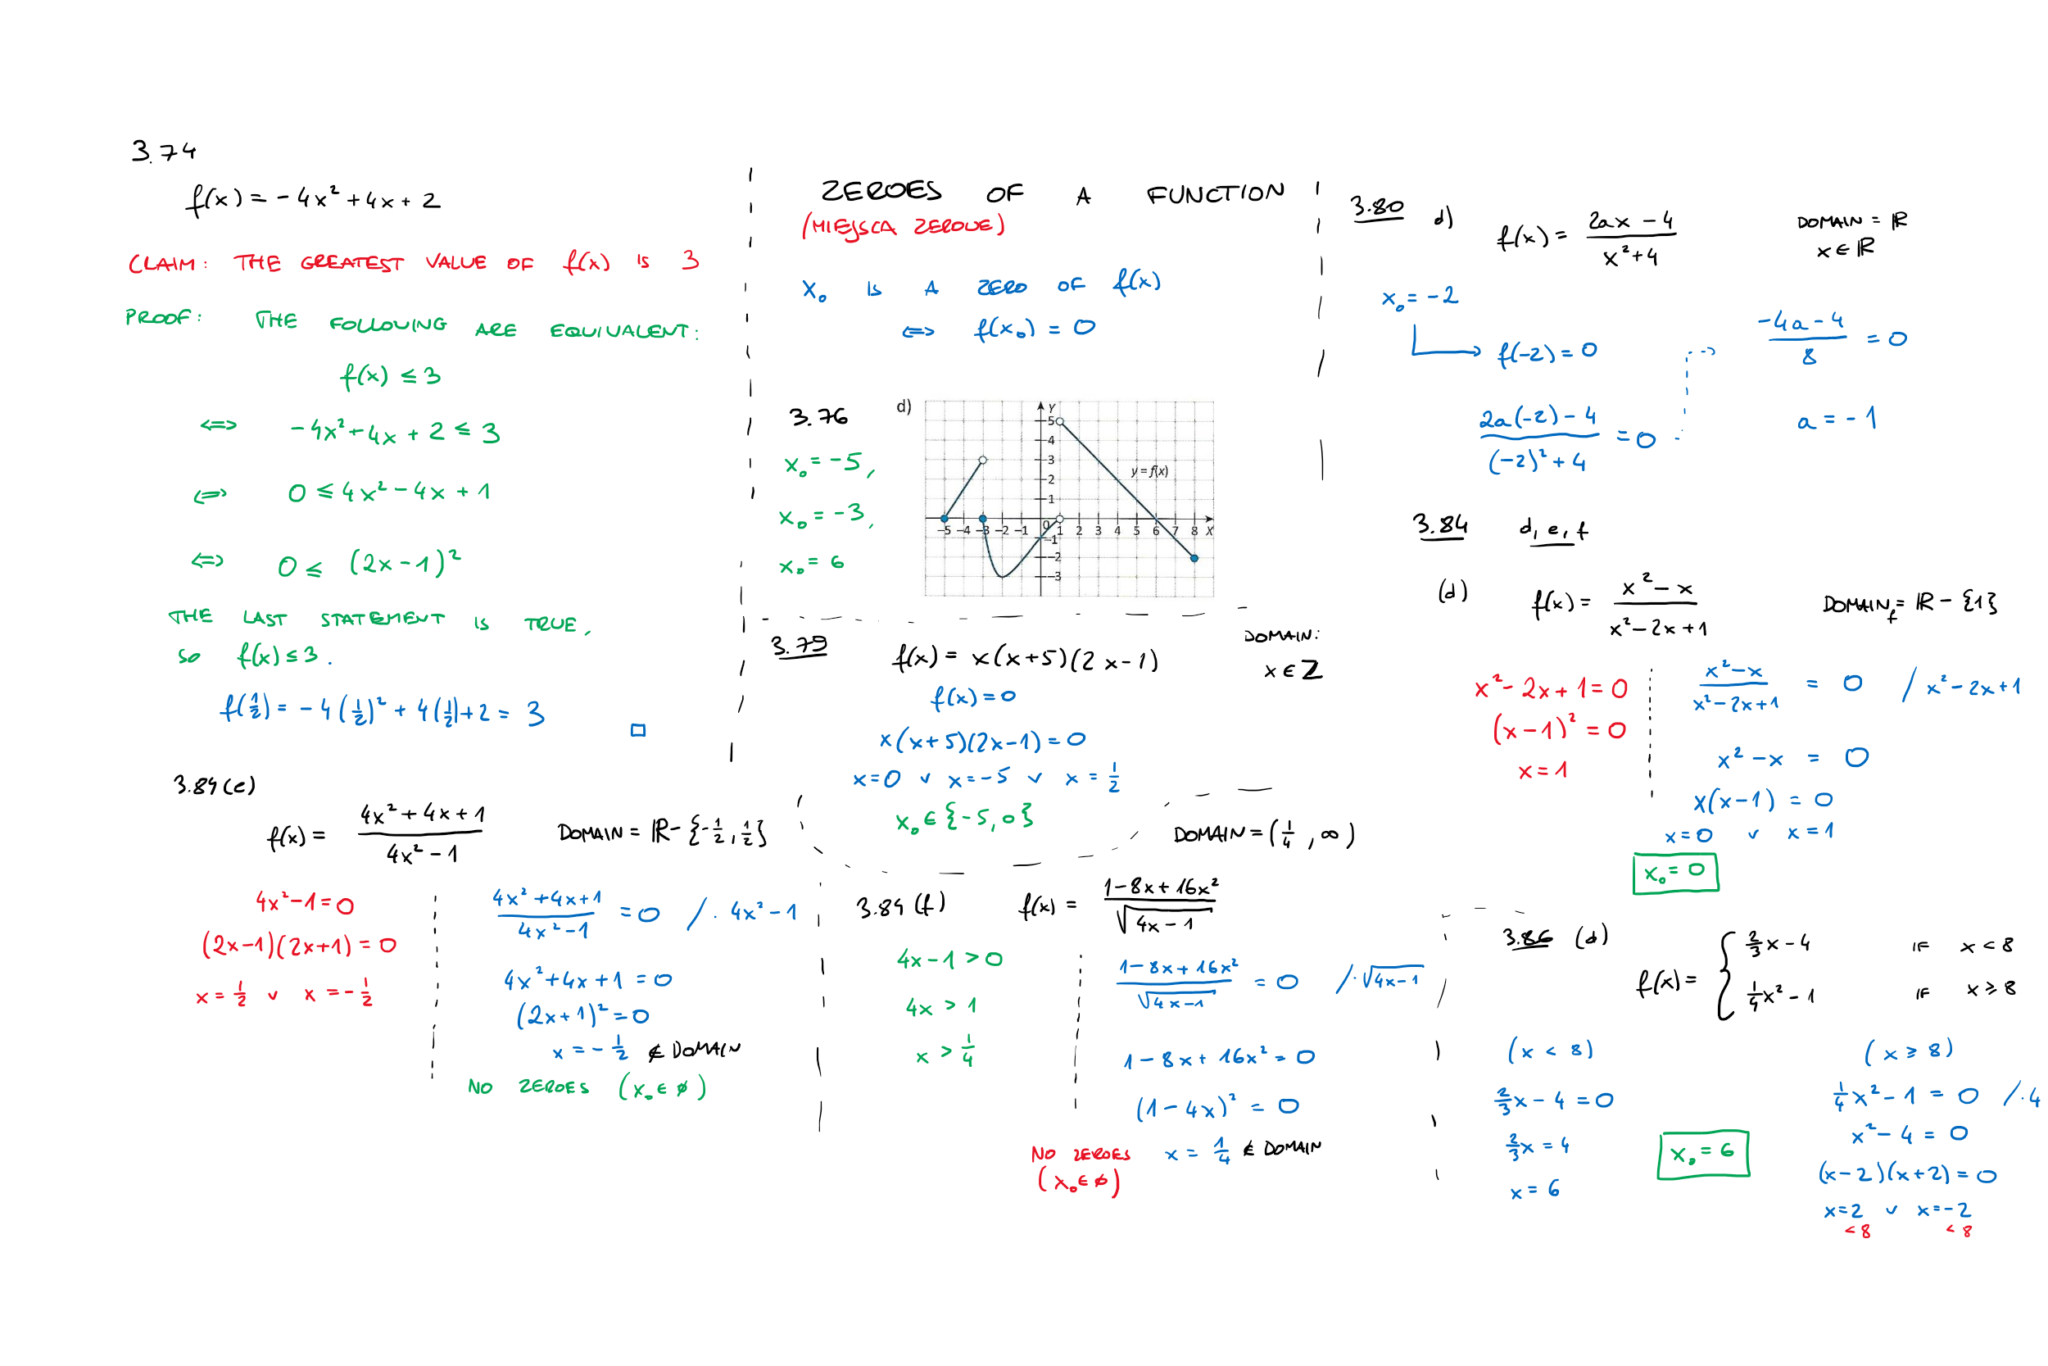 3.74
f(x) = -4x² + 4x + 2
CLAIM: THE GREATEST VALUE OF f(x) IS 3
PROOF: THE FOLLOWING ARE EQUIVALENT:
f(x) ≤ 3
⇔ -4x² + 4x + 2 ≤ 3
⇔ 0 ≤ 4x² - 4x + 1
⇔ 0 ≤ (2x - 1)²
THE LAST STATEMENT IS TRUE,
SO f(x) ≤ 3.
f(1/2) = -4(1/2)² + 4(1/2) + 2 = 3 □
ZEROES OF A FUNCTION
(MIEJSCA ZEROWE)
x₀ IS A ZERO OF f(x)
⇔ f(x₀) = 0
3.76
x₀ = -5,
x₀ = -3,
x₀ = 6
d)
Y
5
4
3
2
1
y = f(x)
-5 -4 -3 -2 -1 0 1 2 3 4 5 6 7 8 X
-1
-2
-3
3.79 f(x) = x(x+5)(2x-1)
DOMAIN:
x ∈ Z
f(x) = 0
x(x+5)(2x-1) = 0
x=0 ∨ x=-5 ∨ x = 1/2
x₀ ∈ {-5, 0}
3.80 d) f(x) = (2ax - 4)/(x² + 4)
DOMAIN = ℝ
x ∈ ℝ
x₀ = -2
f(-2) = 0
(2a(-2) - 4)/((-2)² + 4) = 0
(-4a - 4)/8 = 0
a = -1
3.84 d, e, f
(d) f(x) = (x² - x)/(x² - 2x + 1) DOMAIN_f = ℝ - {1}
x² - 2x + 1 = 0
(x - 1)² = 0
x = 1
(x² - x)/(x² - 2x + 1) = 0 / x² - 2x + 1
x² - x = 0
x(x-1) = 0
x=0 ∨ x=1
x₀ = 0
3.84 (e)
f(x) = (4x² + 4x + 1)/(4x² - 1) DOMAIN = ℝ - {-1/2, 1/2}
4x² - 1 = 0
(2x-1)(2x+1) = 0
x = 1/2 ∨ x = -1/2
(4x² + 4x + 1)/(4x² - 1) = 0 /· 4x² - 1
4x² + 4x + 1 = 0
(2x+1)² = 0
x = -1/2 ∉ DOMAIN
NO ZEROES (x₀ ∈ ∅)
DOMAIN = (1/4, ∞)
3.84 (f) f(x) = (1 - 8x + 16x²)/√(4x - 1)
4x - 1 > 0
4x > 1
x > 1/4
(1 - 8x + 16x²)/√(4x - 1) = 0 /· √(4x-1)
1 - 8x + 16x² = 0
(1 - 4x)² = 0
x = 1/4 ∉ DOMAIN
NO ZEROES
(x₀ ∈ ∅)
3.86 (d)
f(x) = { 2/3x - 4 IF x < 8
1/4x² - 1 IF x ≥ 8
(x < 8)
2/3x - 4 = 0
2/3x = 4
x = 6
x₀ = 6
(x ≥ 8)
1/4x² - 1 = 0 /· 4
x² - 4 = 0
(x-2)(x+2) = 0
x=2 ∨ x=-2
<8 <8